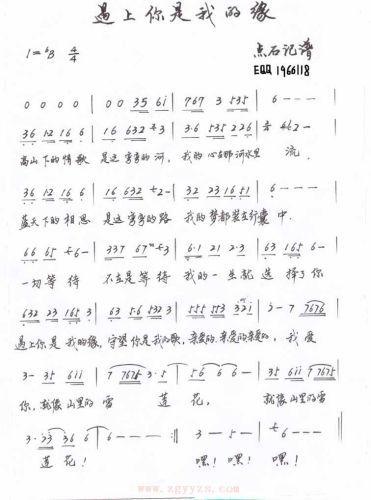 遇上你是我的缘
1=ᵇB 4/4
点石记谱
EQQ 1966118
0 0 0 0 | 0 0 35 6i | 767 3 535 | 6 - - - |
36 12 16 6 | 16 632 3 | 3·6 535 226 | 2 - |
高山下的情歌 是这弯弯的河, 我的心在那河水里 流,
36 12 16 6 | 16 632 2- | 32 23 16 51 | 6 - - - |
蓝天下的相思 是这弯弯的路 我的梦都装在行囊 中.
66 65 6- | 337 67 3 | 6·1 21 2·3 | 63 165 6 - |
一切等待 不在是等待 我的一生就选择了你
632 23 165 3 | 63 56 532 3 | 555 553 321 | 2 - 7 7676 |
遇上你是我的缘, 守望你是我的歌, 亲爱的,亲爱的亲爱的, 我爱
3 - 35 6ii | 7 7675 3·5 | 56 6 6 - | 35 6ii 7 7675 |
你, 就像山里的雪 莲花, 就像山里的雪
3·23 36 6 | 6 - - - :|| 3 - 5 - | 6 - - - ||
莲花! 嘿! 嘿! 嘿!
www.zgyyzs.com